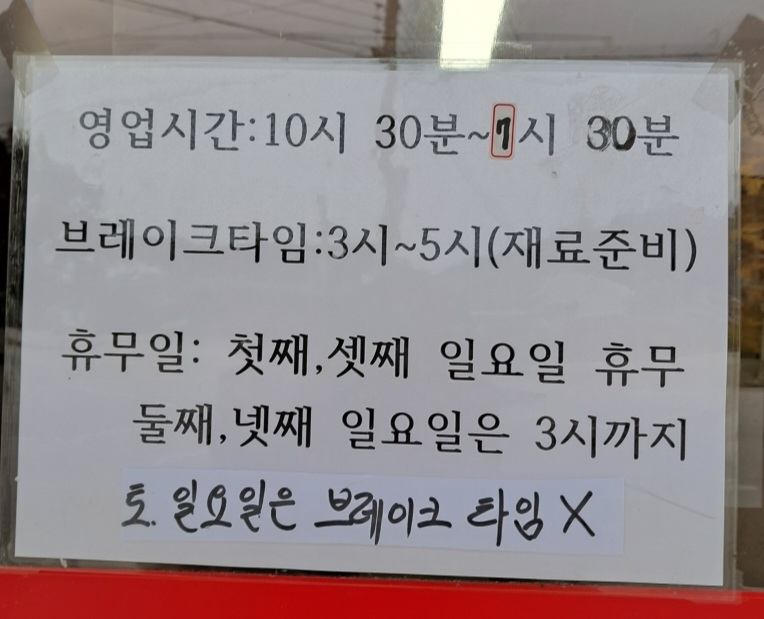 영업시간:10시 30분~7시 30분
브레이크타임:3시~5시(재료준비)
휴무일: 첫째,셋째 일요일 휴무
둘째,넷째 일요일은 3시까지
토.일요일은 브레이크 타임 X